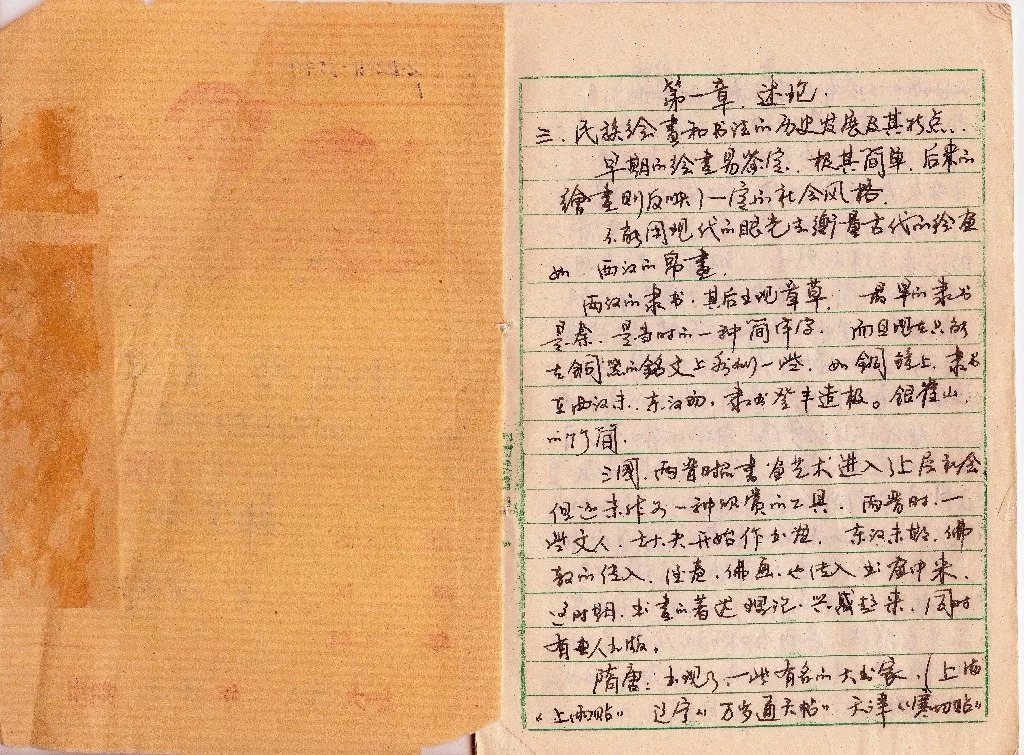 第一章 述论
三、民族绘画和书法的历史发展及其特点.
早期的绘画易鉴定、极其简单,后来的
繪画则反映了一定的社会风格.
不能用现代的眼光去衡量古代的绘画
如 两汉的帛畫.
两汉的隶书.其后出现章草. 最早的隶书
是秦.是当时的一种简字. 而且现在只能
在銅器的銘文上看到一些.如銅镜上.隶书
在西汉末.东汉初.隶书登丰造极。银雀山
的竹简.
三國.两晋时书画艺术进入了上层社会
但还未作为一种欣赏的工具. 两晋时.一
些文人.士大夫开始作书画. 东汉末期.佛
教的传入.佛画.也传入书画中来.
这时期.书画的著述 兴盛起来.同时
有人出版.
隋唐:出现了.一些有名的大书家.(上海
"上雨贴" 辽宁"万岁通天帖" 天津"寒切贴"